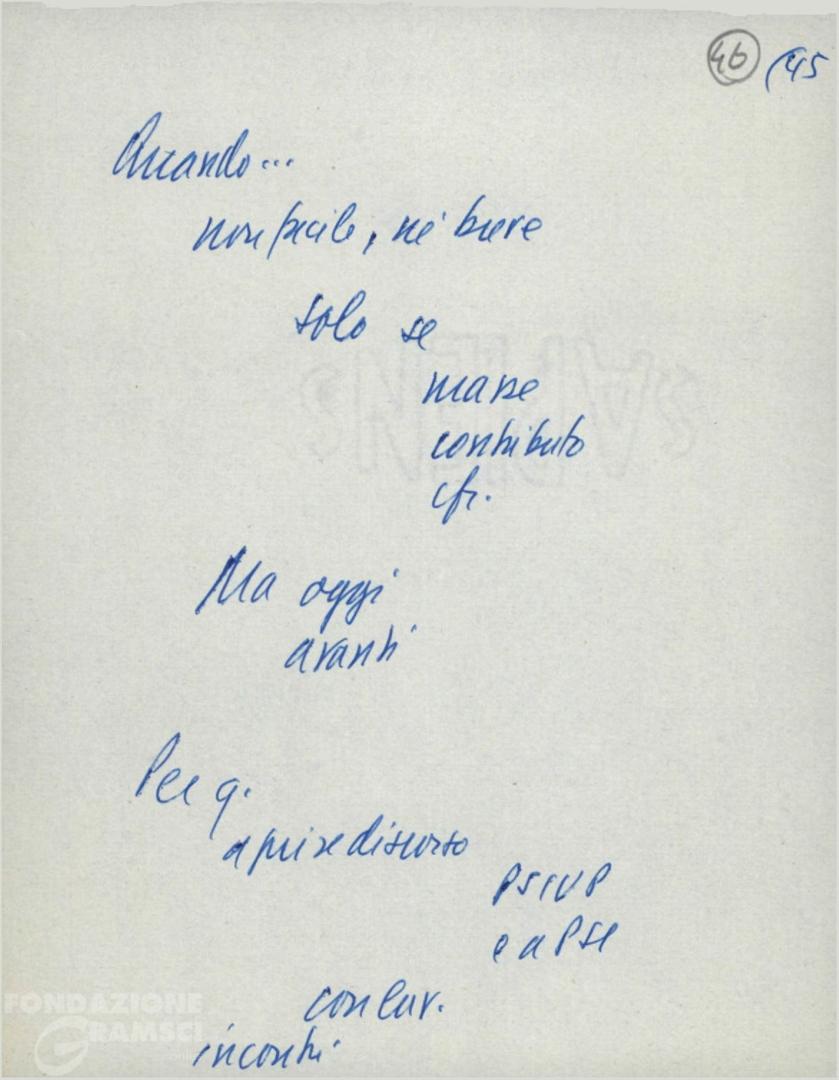 46 (45
Quando...
non facile, né breve
solo se
masse
contributo
cfr.
Ma oggi
avanti
Per q.
aprire discorso
PSIUP
e a PSI
con lav.
incontri
FONDAZIONE
GRAMSCI